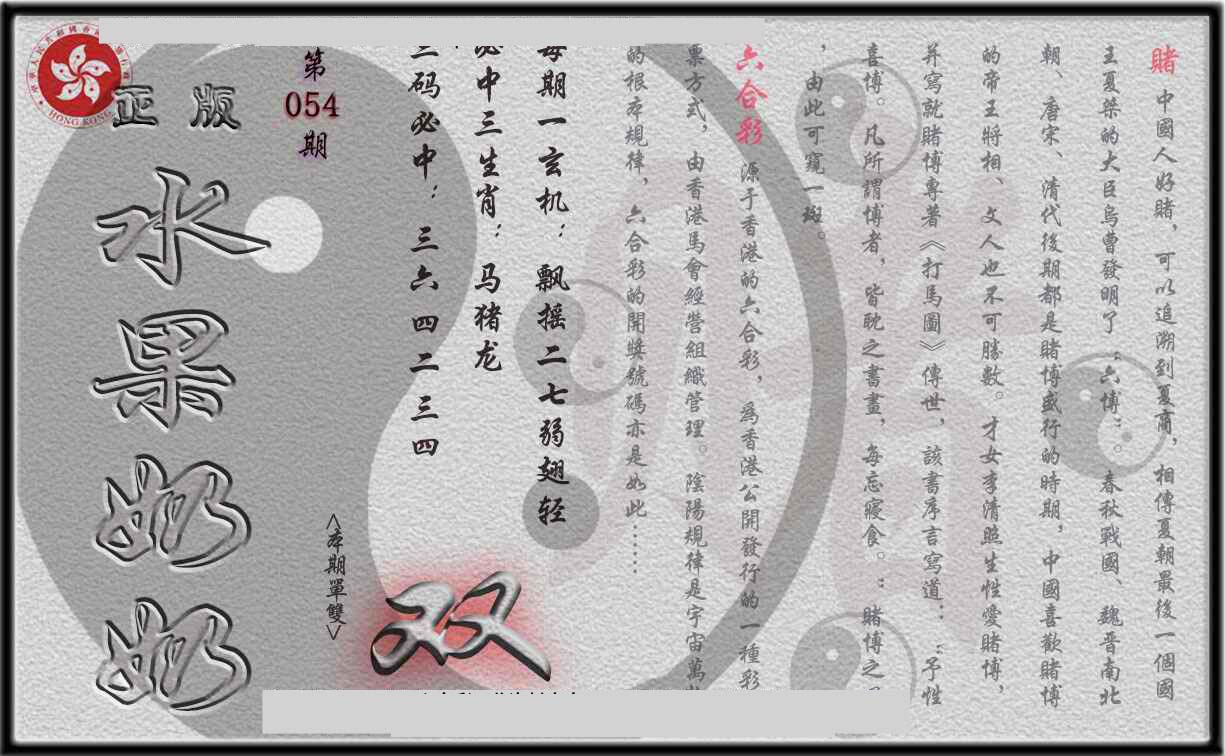 賭 中國人好賭，可以追溯到夏商，相傳夏朝最後一個國
王夏桀的大臣烏曹發明了“六博”。春秋戰國、魏晋南北
朝、唐宋、清代後期都是賭博盛行的時期，中國喜歡賭博
的帝王將相、文人也不可勝數。才女李清照生性愛賭博，
并寫就賭博專著《打馬圖》傳世，該書序言寫道：“予性
喜博。凡所謂博者，皆耽之晝書，每忘寢食。”賭博之
，由此可窺一斑。
六合彩 源于香港的六合彩，爲香港公開發行的一種彩
票方式，由香港馬會經營組織管理。陰陽規律是宇宙萬
的根本規律，六合彩的開獎號碼亦是如此……
每期一玄机：飘摇二七弱翅轻
必中三生肖：马猪龙
三码必中：三六 四二 三四
第
054
期
<本期單雙>
双
正版
水果奶奶
HONG KONG